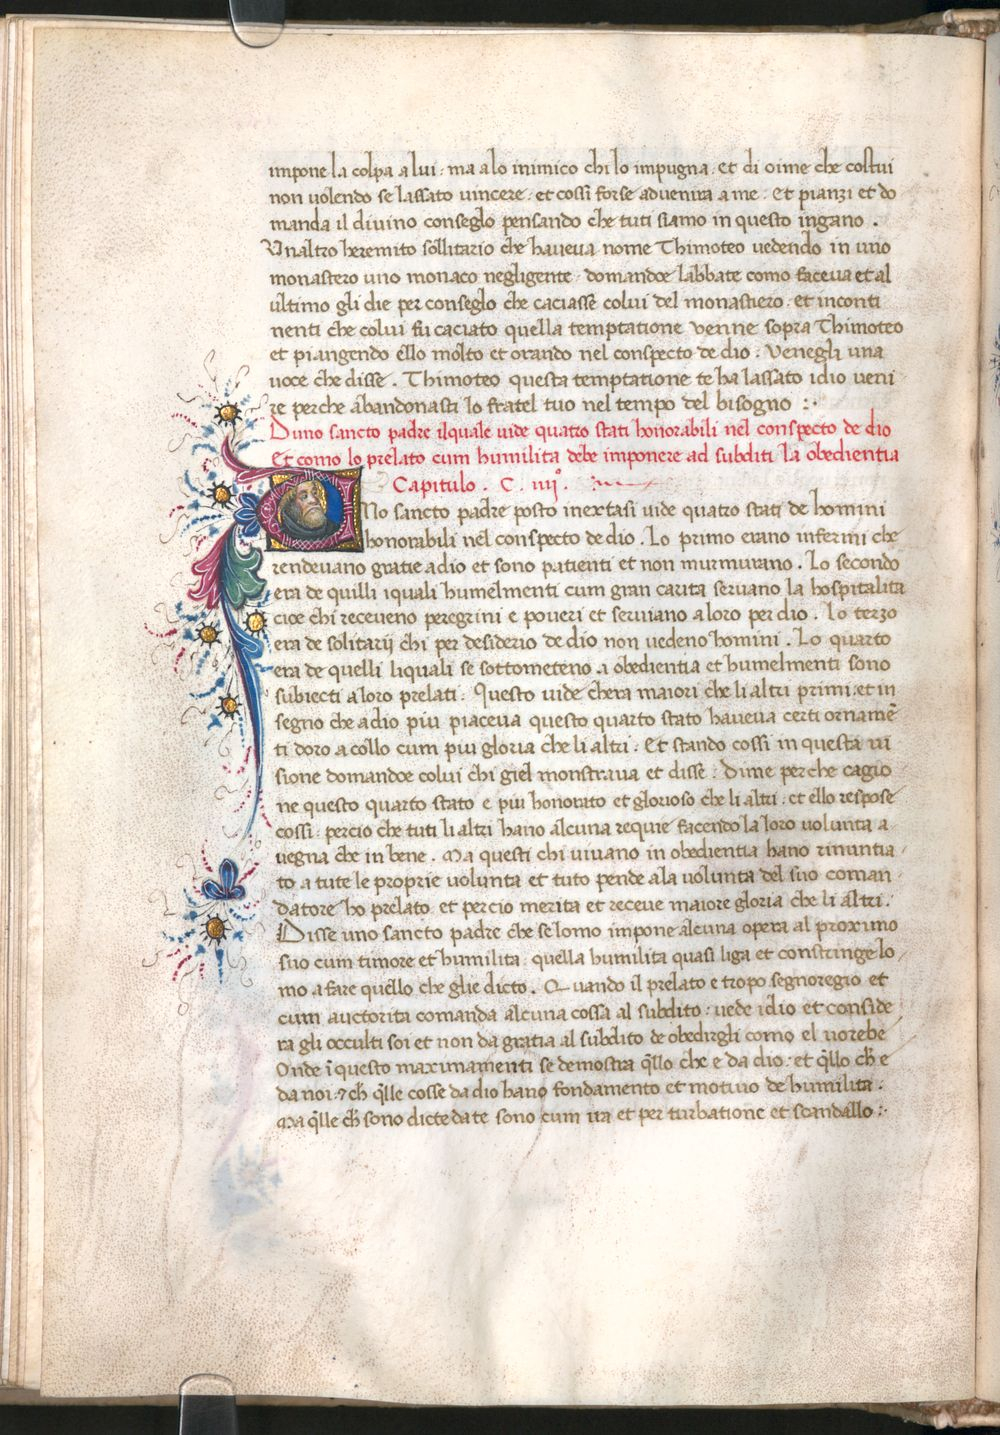 impone la colpa a lui · ma a lo inimico chi lo impugna · et di oime che costui
non volendo se lassato vincere · et cossi forse advenira a me · Et pianzi et do
manda il divino conseglo pensando che tuti siamo in questo ingano .
Vnaltro heremito sollitario che haveva nome Thimoteo vedendo in uno
monastero uno monaco negligente · domandoe labbate como faceva et al
ultimo gli die per conseglo che caciasse colui del monastiero · et inconti
nenti che colui fu caciato quella temptatione venne sopra Thimoteo
et piangendo ello molto et orando nel conspecto de dio · Venegli una
voce che disse . Thimoteo questa temptatione te ha lassato idio veni
re perche abandonasti lo fratel tuo nel tempo del bisogno :·
Duno sancto padre ilquale vide quatro stati honorabili nel conspecto de dio
Et como lo prelato cum humilita debe imponere ad subditi la obedientia
Capitulo . C . iiijº .
VNo sancto padre posto inextasi vide quatro stati de homini
honorabili nel conspecto de dio . Lo primo erano infermi che
rendevano gratie adio et sono patienti et non murmurano . Lo secondo
era de quilli iquali humelmenti cum gran carita servano la hospitalita
cioe chi receveno peregrini e poveri et serviano a loro per dio . Lo terzo
era de solitarij chi per desiderio de dio non vedeno homini . Lo quarto
era de quelli liquali se sottometeno a obedientia et humelmenti sono
subiecti a loro prelati · Questo vide chera maiori che li altri primi · et in
segno che a dio piu piaceva questo quarto stato haveva certi ornamē
ti doro a collo cum piu gloria che li altri · Et stando cossi in questa vi
sione domandoe colui chi giel monstrava et disse · Dime per che cagio
ne questo quarto stato e piu honorato et glorioso che li altri · et ello respose
cossi · percio che tuti li altri hano alcuna requie facendo la loro volunta a
vegna che in bene . Ma questi chi vivano in obedientia hano rinuntia
to a tute le proprie volunta et tuto pende ala volunta del suo coman
datore ho prelato · et percio merita et receve maiore gloria che li altri .
Disse uno sancto padre che se lomo impone alcuna opera al proximo
suo cum timore et humilita · quella humilita quasi liga et constringe lo
mo a fare quello che glie dicto . Quando il prelato e tropo segnoregio et
cum auctorita comanda alcuna cossa al subdito · vede idio et conside
ra gli occulti soi et non da gratia al subdito de obedirgli como el vorebe
Onde ī questo maximamenti se demostra q̄llo che e da dio · et q̄llo ch̄ e
da noi · ⁊ ch̄ q̄lle cosse da dio hano fondamento et motivo de humilita .
Ma q̄lle ch̄ sono dicte da te sono cum ira et per turbatione et scandallo :·